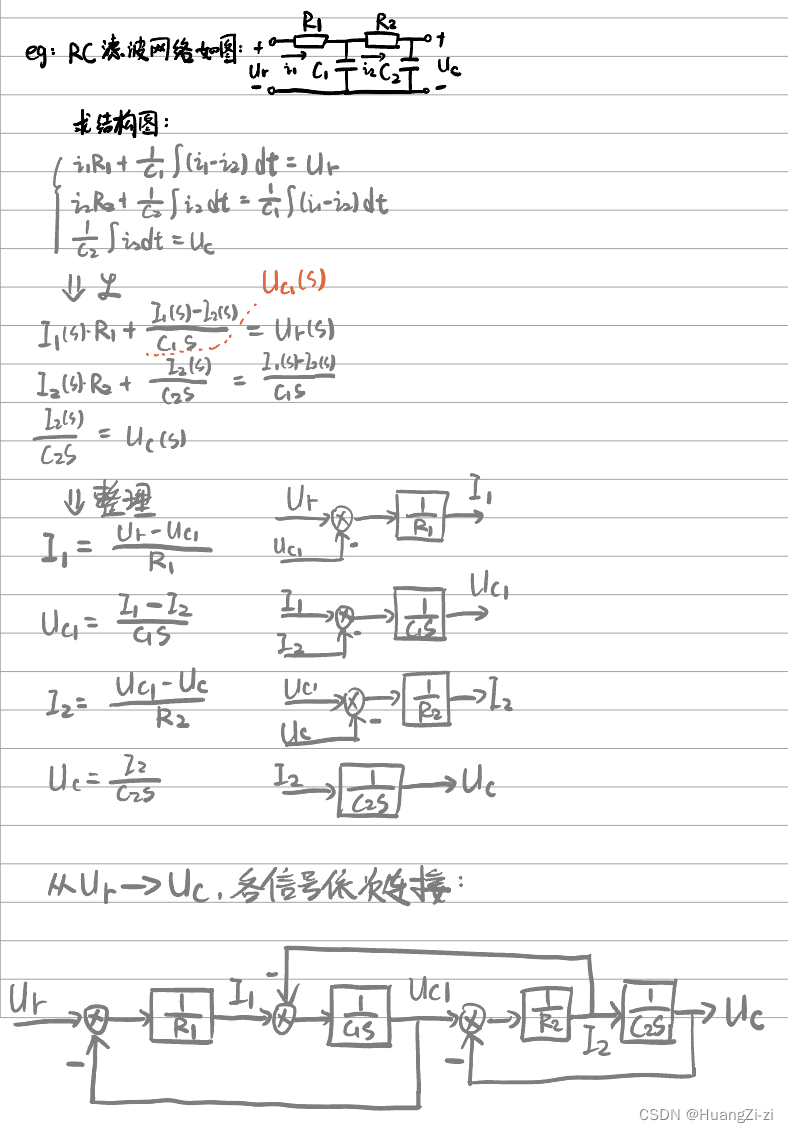 eg: RC滤波网络如图:
R₁ R₂
+ +
Ur i₁ C₁ i₂ C₂ Uc
- -
求结构图:
i₁R₁ + 1/C₁ ∫(i₁-i₂)dt = Ur
i₂R₂ + 1/C₂ ∫i₂dt = 1/C₁ ∫(i₁-i₂)dt
1/C₂ ∫i₂dt = Uc
⇓ ℒ
Uc₁(s)
I₁(s)·R₁ + (I₁(s)-I₂(s))/(C₁S) = Ur(s)
I₂(s)·R₂ + I₂(s)/(C₂S) = (I₁(s)-I₂(s))/(C₁S)
I₂(s)/(C₂S) = Uc(s)
⇓ 整理
I₁ = (Ur-Uc₁)/R₁
Ur Uc₁ - 1/R₁ I₁
Uc₁ = (I₁-I₂)/(C₁S)
I₁ I₂ - 1/(C₁S) Uc₁
I₂ = (Uc₁-Uc)/R₂
Uc₁ Uc - 1/R₂ I₂
Uc = I₂/(C₂S)
I₂ 1/(C₂S) Uc
从Ur→Uc, 各信号依次连接:
Ur - 1/R₁ I₁ - 1/(C₁S) Uc1 - 1/R₂ I₂ 1/(C₂S) Uc
CSDN @HuangZi-zi